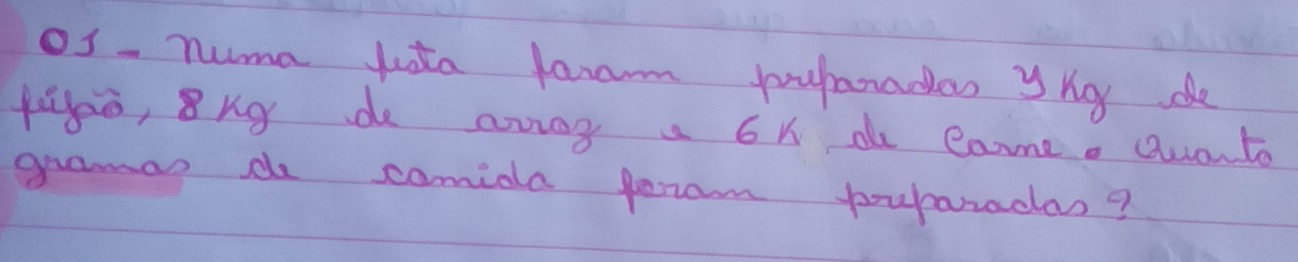 01 - Numa festa foram preparadas 4 Kg de
feijão, 8 Kg de arroz e 6 K de Carne. Quanto
gramas de comida foram preparadas?